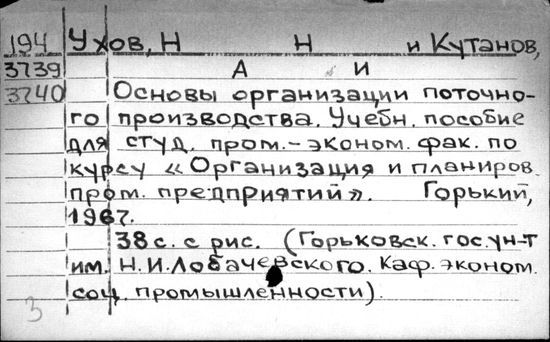 194 Ухов, Н Н и Кутанов,
3739 А И
3740 Основы организации поточно-
го производства. Учебн. пособие
для студ. пром.-эконом. фак. по
курсу «Организация и планиров.
пром. предприятий». Горький,
1967.
38 с. с рис. (Горьковск. гос. ун-т
им. Н.И. Лобачевского. Каф. эконом.
соц. промышленности).
3